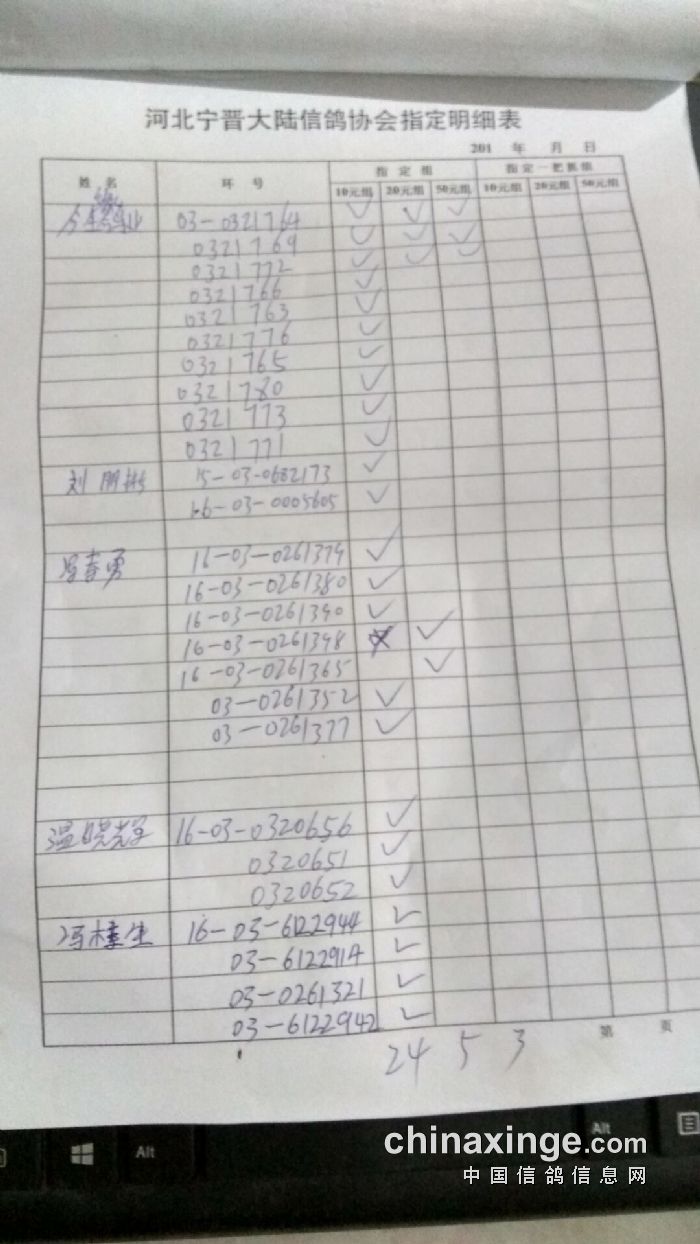 河北宁晋大陆信鸽协会指定明细表
201 年 月 日
姓 名 环 号 指 定 组 指 定 一 把 抓 组
10元组 20元组 50元组 10元组 20元组 50元组
03-0321764 ✓ ✓ ✓
0321769 ✓ ✓ ✓
0321772 ✓ ✓ ✓
0321766 ✓
0321763 ✓
0321776 ✓
0321765 ✓
0321780 ✓
0321773 ✓
0321771 ✓
刘朋彬 15-03-0682173 ✓
16-03-0005605 ✓
冯春勇 16-03-0261379 ✓
16-03-0261380 ✓
16-03-0261390 ✓
16-03-0261398 ✓
16-03-0261365 ✓
03-0261352 ✓
03-0261377 ✓
温晓 16-03-0320656 ✓
0320651 ✓
0320652 ✓
冯桂生 16-03-6122944 ✓
03-6122914 ✓
03-0261321 ✓
03-6122942 ✓
24 5 3
第 页
Alt
Alt
chinaxinge.com
中国信鸽信息网